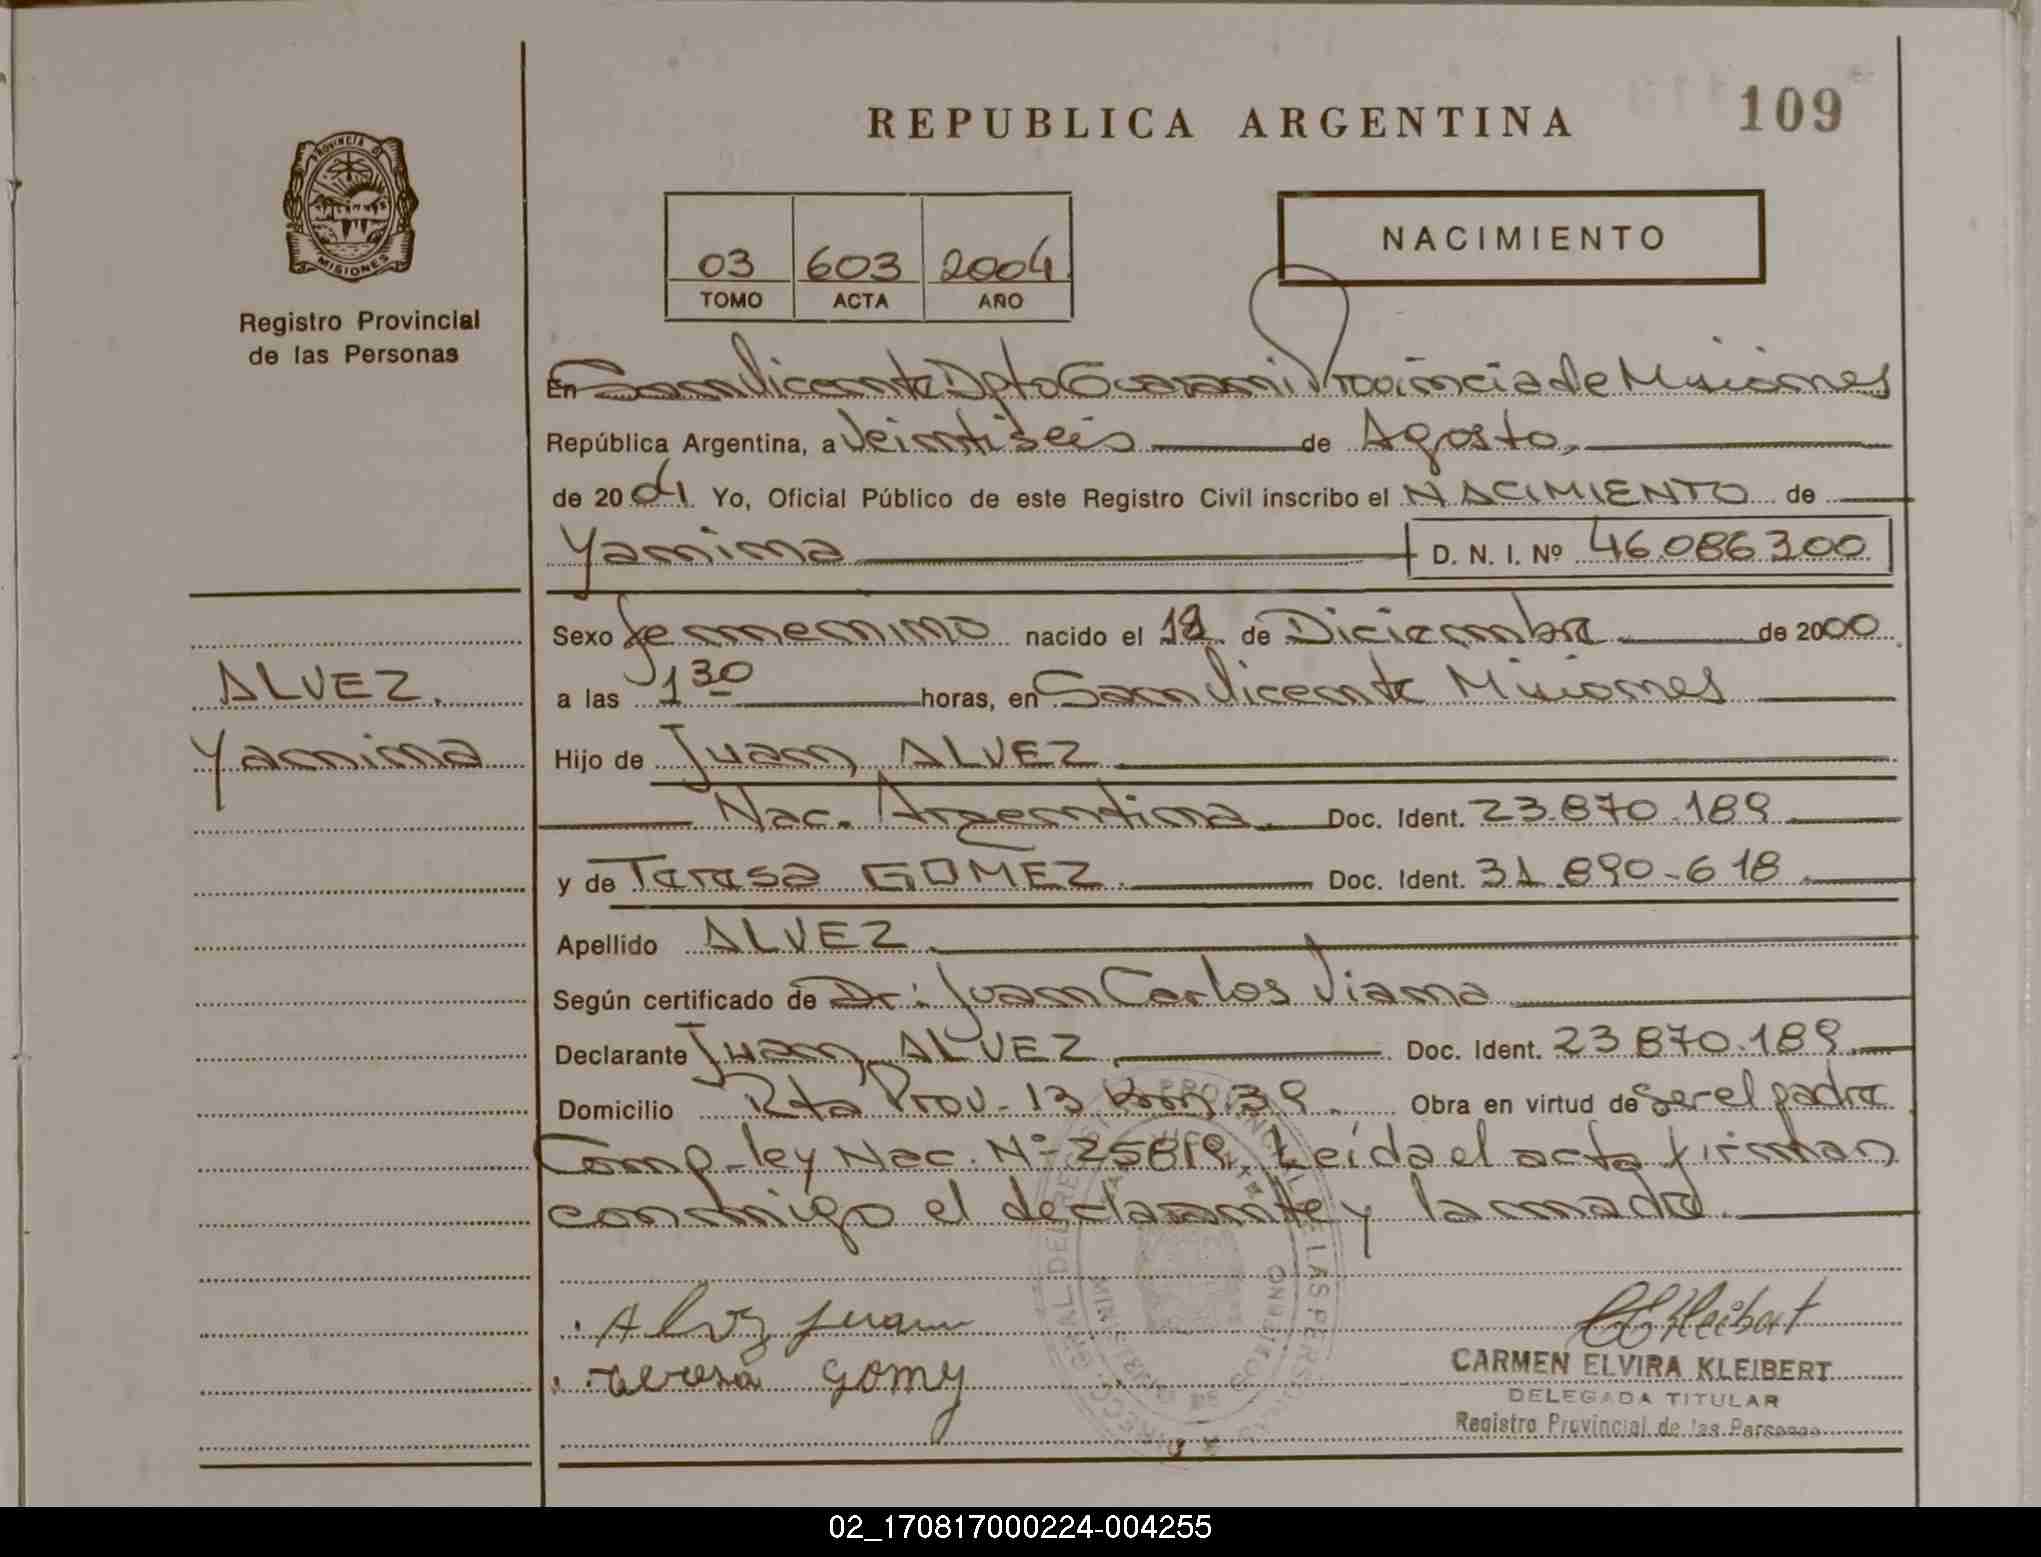 109
REPUBLICA ARGENTINA
PROVINCIA DE
MISIONES
Registro Provincial
de las Personas
03 603 2004
TOMO ACTA AÑO
NACIMIENTO
En San Vicente Dpto Guarani Provincia de Misiones
República Argentina, a Veintiseis de Agosto,
de 2004 Yo, Oficial Público de este Registro Civil inscribo el NACIMIENTO de
Yamima D. N. I. Nº 46.086.300
Sexo femenino nacido el de Diciembre de 2000
ALVEZ.
Yamima
a las 1 30 horas, en San Vicente Misiones
Hijo de Juan ALVEZ
Nac. Argentina. Doc. Ident. 23.870.189
y de Teresa GOMEZ. Doc. Ident. 31.890-618
Apellido ALVEZ
Según certificado de Dr: Juan Carlos Viana
Declarante Juan ALVEZ Doc. Ident. 23.870.189
Domicilio Rta Prov. 13 Km 39. Obra en virtud de ser el padre
Comp-ley Nac. Nº 25819. Leída el acta firman
conmigo el declarante y la madre.
Alvez Juan
teresa gomez
CEKleibert
CARMEN ELVIRA KLEIBERT
DELEGADA TITULAR
Registro Provincial de las Personas
02_170817000224-004255